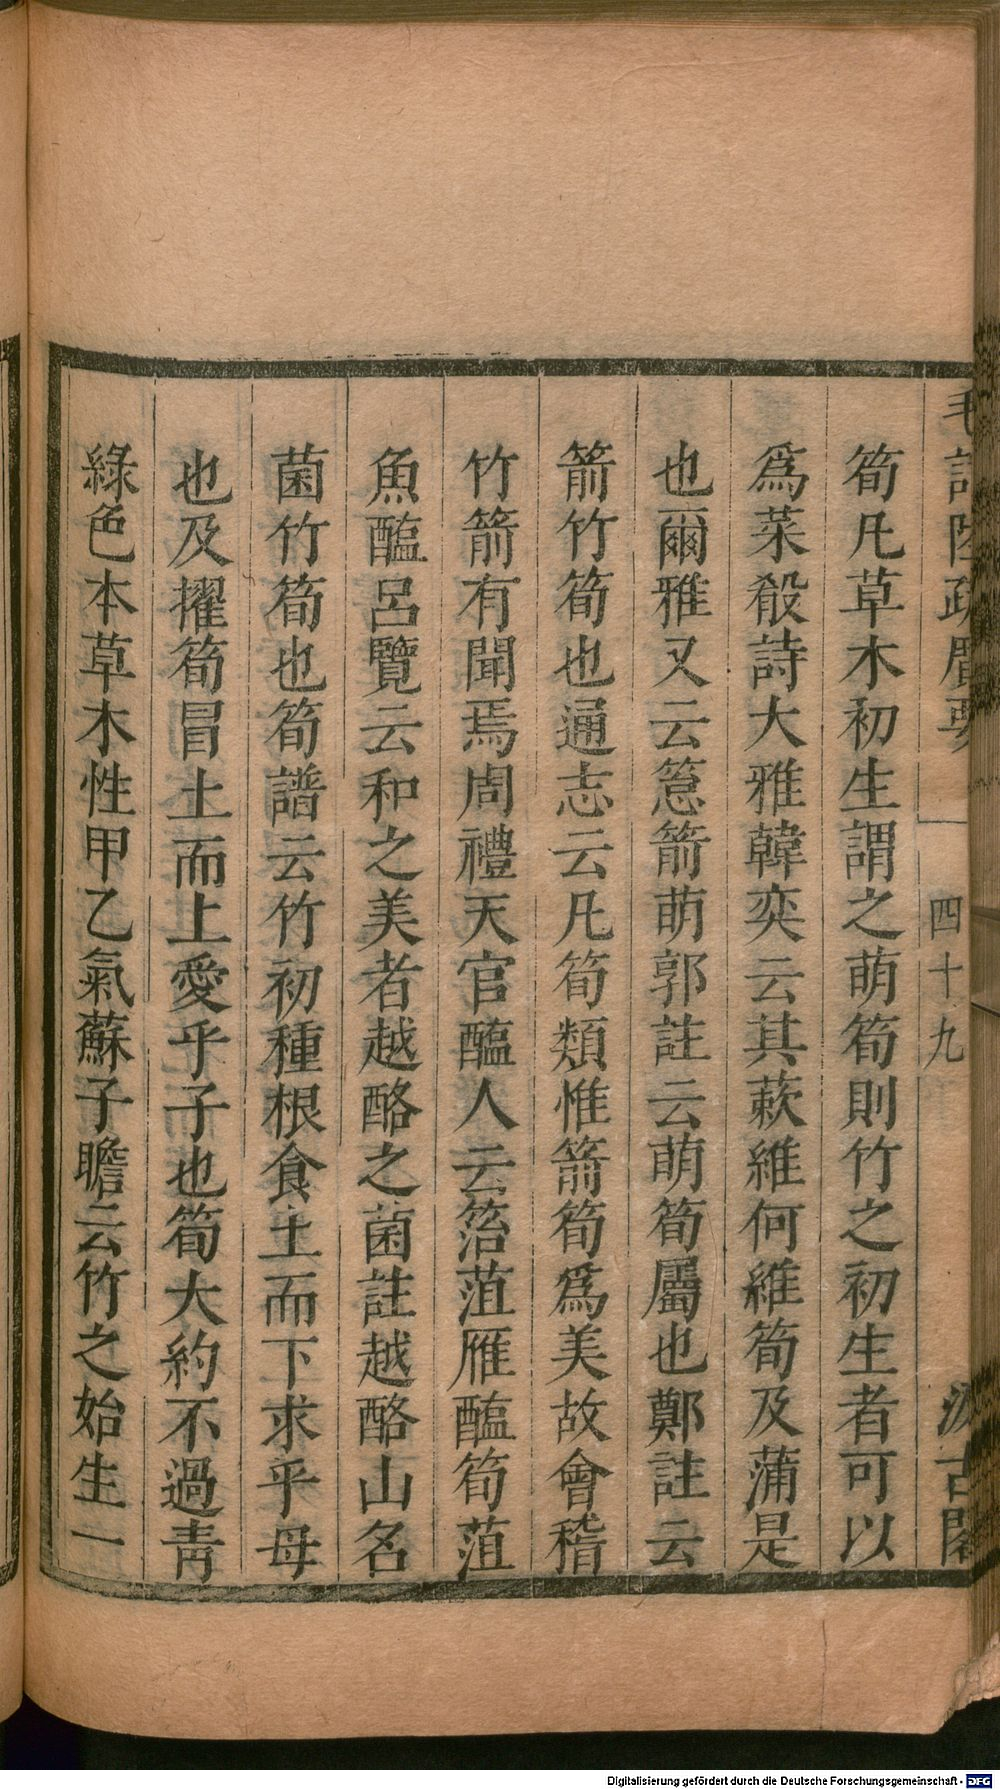 毛詩陸疏廣要 四十九 汲古閣
筍凡草木初生謂之萌筍則竹之初生者可以
爲菜殽詩大雅韓奕云其蔌維何維筍及蒲是
也爾雅又云篙箭萌郭註云萌筍屬也鄭註云
箭竹筍也通志云凡筍類惟箭筍爲美故會稽
竹箭有聞焉周禮天官醢人云箈菹雁醢筍菹
魚醢呂覽云和之美者越酪之菌註越酪山名
菌竹筍也筍譜云竹初種根食土而下求乎母
也及擢筍冒土而上愛乎子也筍大約不過青
綠色本草木性甲乙氣蘇子瞻云竹之始生一
Digitalisierung gefördert durch die Deutsche Forschungsgemeinschaft - DFG